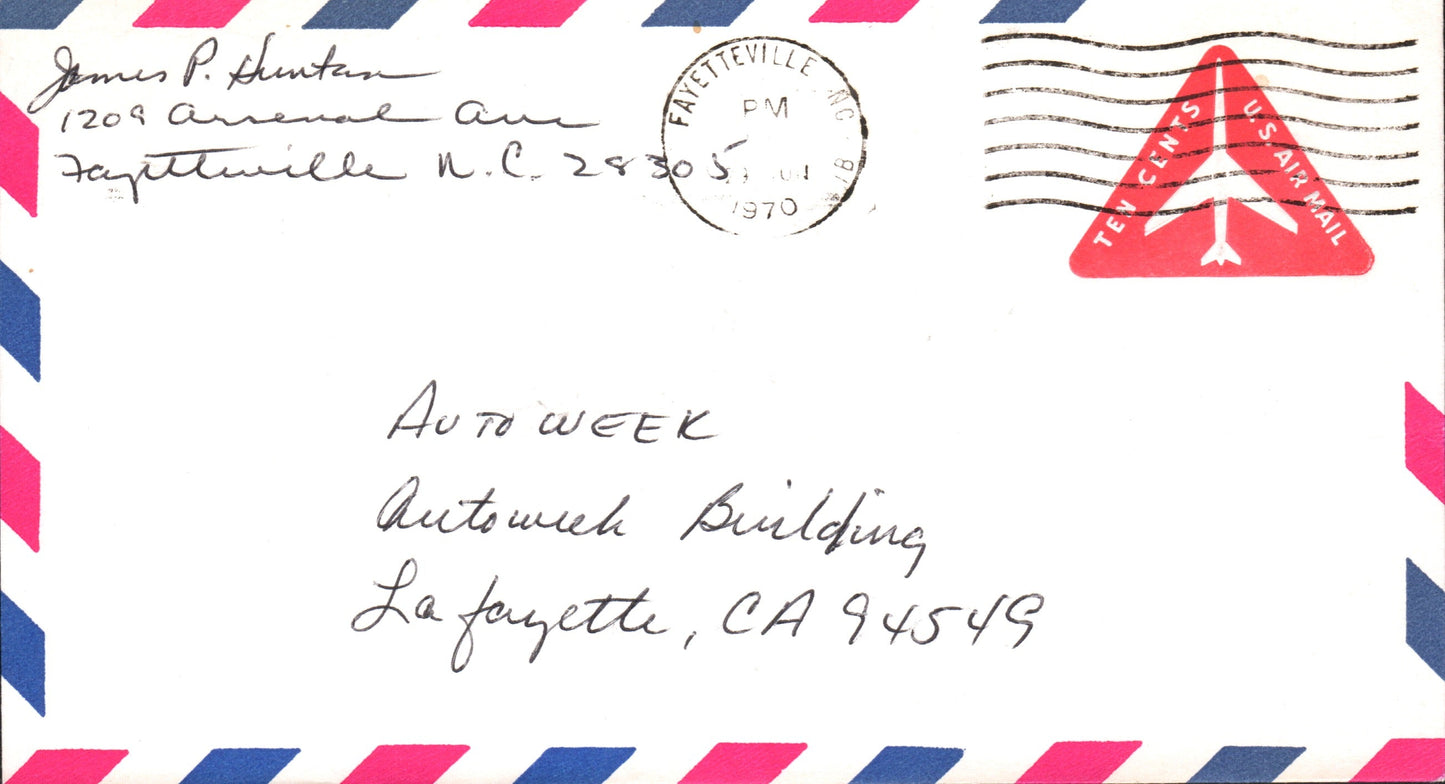 James P.
1209 Arsenal Ave
Fayetteville N.C. 28305
FAYETTEVILLE NC
PM
1970
TEN CENTS
U.S. AIR MAIL
AUTOWEEK
Autoweek Building
Lafayette, CA 94549